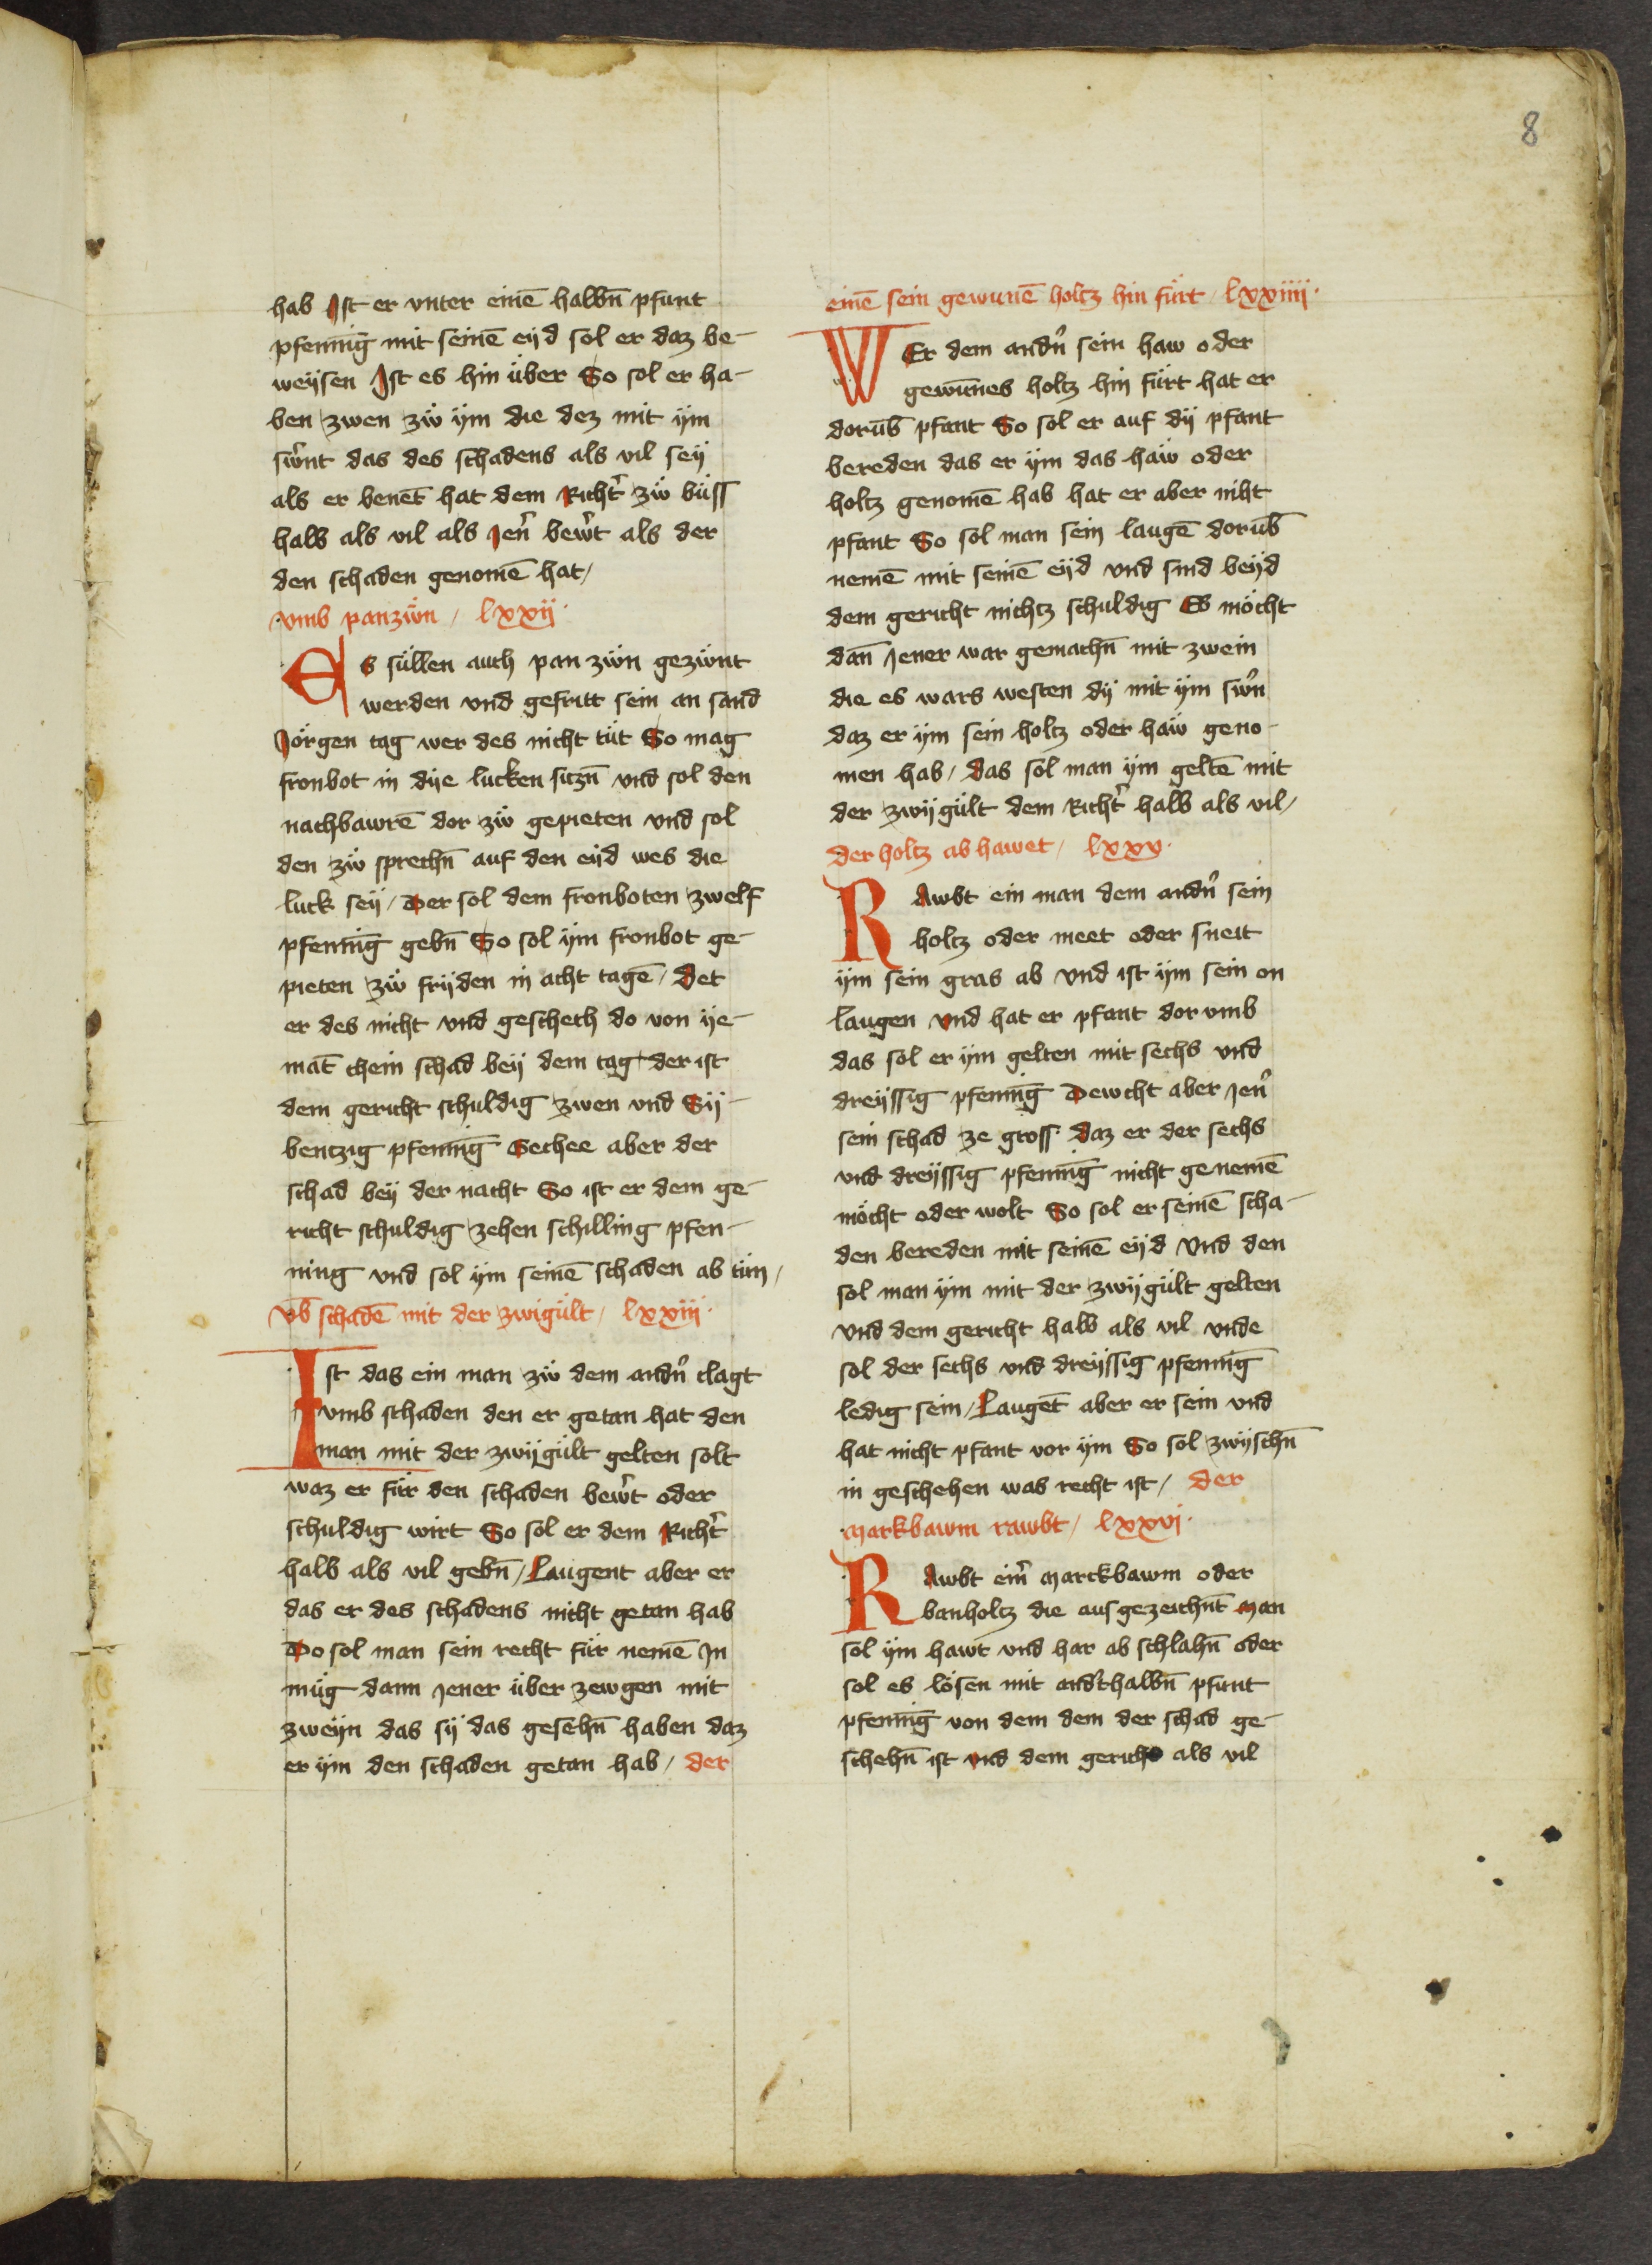 8
hab Ist er vnter einē halbn̄ pfunt
pfenniḡ mit seinē eÿd sol er daz be-
weÿsen Ist es hin über So sol er ha-
ben zwen zẅ ÿm die dez mit ÿm
sw̉nt das des schadens als vil seÿ
als er benēt hat dem Richt̉ zẅ büss
halb als vil als Jen̉ bew̉t als der
den schaden genomē hat /
vmb panzẅn / lxxij·
Es süllen auch pan zẅn gezẅnt
werden vnd gefritt sein an sand
Jörgen tag wer des nicht tüt So mag
fronbot in dÿe lucken siczn̄ vnd sol den
nachbawrē dor zẅ gepieten vnd sol
den zẅ sprechn̄ auf den eÿd wes die
luck seÿ / Der sol dem fronboten zwelf
pfenniḡ gebn̄ So sol ÿm fronbot ge-
pieten zẅ frÿden in acht tagē / Det
er des nicht vnd geschech do von ÿe-
mat̄ chein schad beÿ dem tag der ist
dem gericht schuldig zwen vnd Sÿ-
bentzig pfenniḡ Gechee aber der
schad beÿ der nacht So ist er dem ge-
richt schuldig zehen schilling pfen-
ning vnd sol ÿm seinē schaden ab tün /
Vb̄ schadē mit der zwigült / lxxiij·
Ist das ein man zẅ dem andn̉ clagt
vmb schaden den er getan hat den
man mit der zwÿgült gelten solt
waz er für den schaden bew̉t oder
schuldig wirt So sol er dem Richt̉
halb als vil gebn̄ / Laugent aber er
das er des schadens nicht getan hab
Do sol man sein recht für nemē Jn
müg dann Jener über zewgen mit
zweÿn das sÿ das gesehn̄ haben daz
er ÿm den schaden getan hab / der
einē sein gewunē holtz hin fürt / lxxiiij·
WEr dem andn̉ sein haw oder
gewūnes holtz hin fürt hat er
dorub̄ pfant So sol er auf dÿ pfant
bereden das er ÿm das haẅ oder
holtz genomē hab hat er aber niht
pfant So sol man sein laugē dorub̄
nemē mit seinē eÿd vnd sind beÿd
dem gericht nichtz schuldig Es möcht
dan̄ Jener war gemachn̄ mit zwein
die es wars westen dÿ mit ÿm sw̉n
daz er ÿm sein holtz oder haẅ geno-
men hab / das sol man ÿm geltē mit
der zwÿgült dem Richt̉ halb als vil /
der holtz ab hawet / lxxv·
RAwbt ein man dem andn̉ sein
holtz oder meet oder sneit
ÿm sein gras ab vnd ist ÿm sein on
laugen vnd hat er pfant dor vmb
das sol er ÿm gelten mit sechs vnd
dreÿssig pfenniḡ Dewcht aber Jen̉
sein schad ze gross daz er der sechs
vnd dreÿssig pfenniḡ nicht genemē
möcht oder wolt So sol er seinē scha-
den bereden mit seinē eÿd Vnd den
sol man ÿm mit der zwÿgült gelten
vnd dem gericht halb als vil vnde
sol der sechs vnd dreÿssig pfenniḡ
ledig sein / Laugēt aber er sein vnd
hat nicht pfant vor ÿm So sol zwÿschn̄
in geschehen was recht ist / der
Markbawm rawbt / lxxvj·
RAwbt ein̉ Marckbawm oder
banholtz die ausgezeichn̄t Man
sol ÿm hawt vnd har ab schlahn̄ oder
sol es lösen mit and̉thalbn̄ pfunt
pfenniḡ von dem dem der schad ge-
schehn̄ ist vnd dem gericht als vil